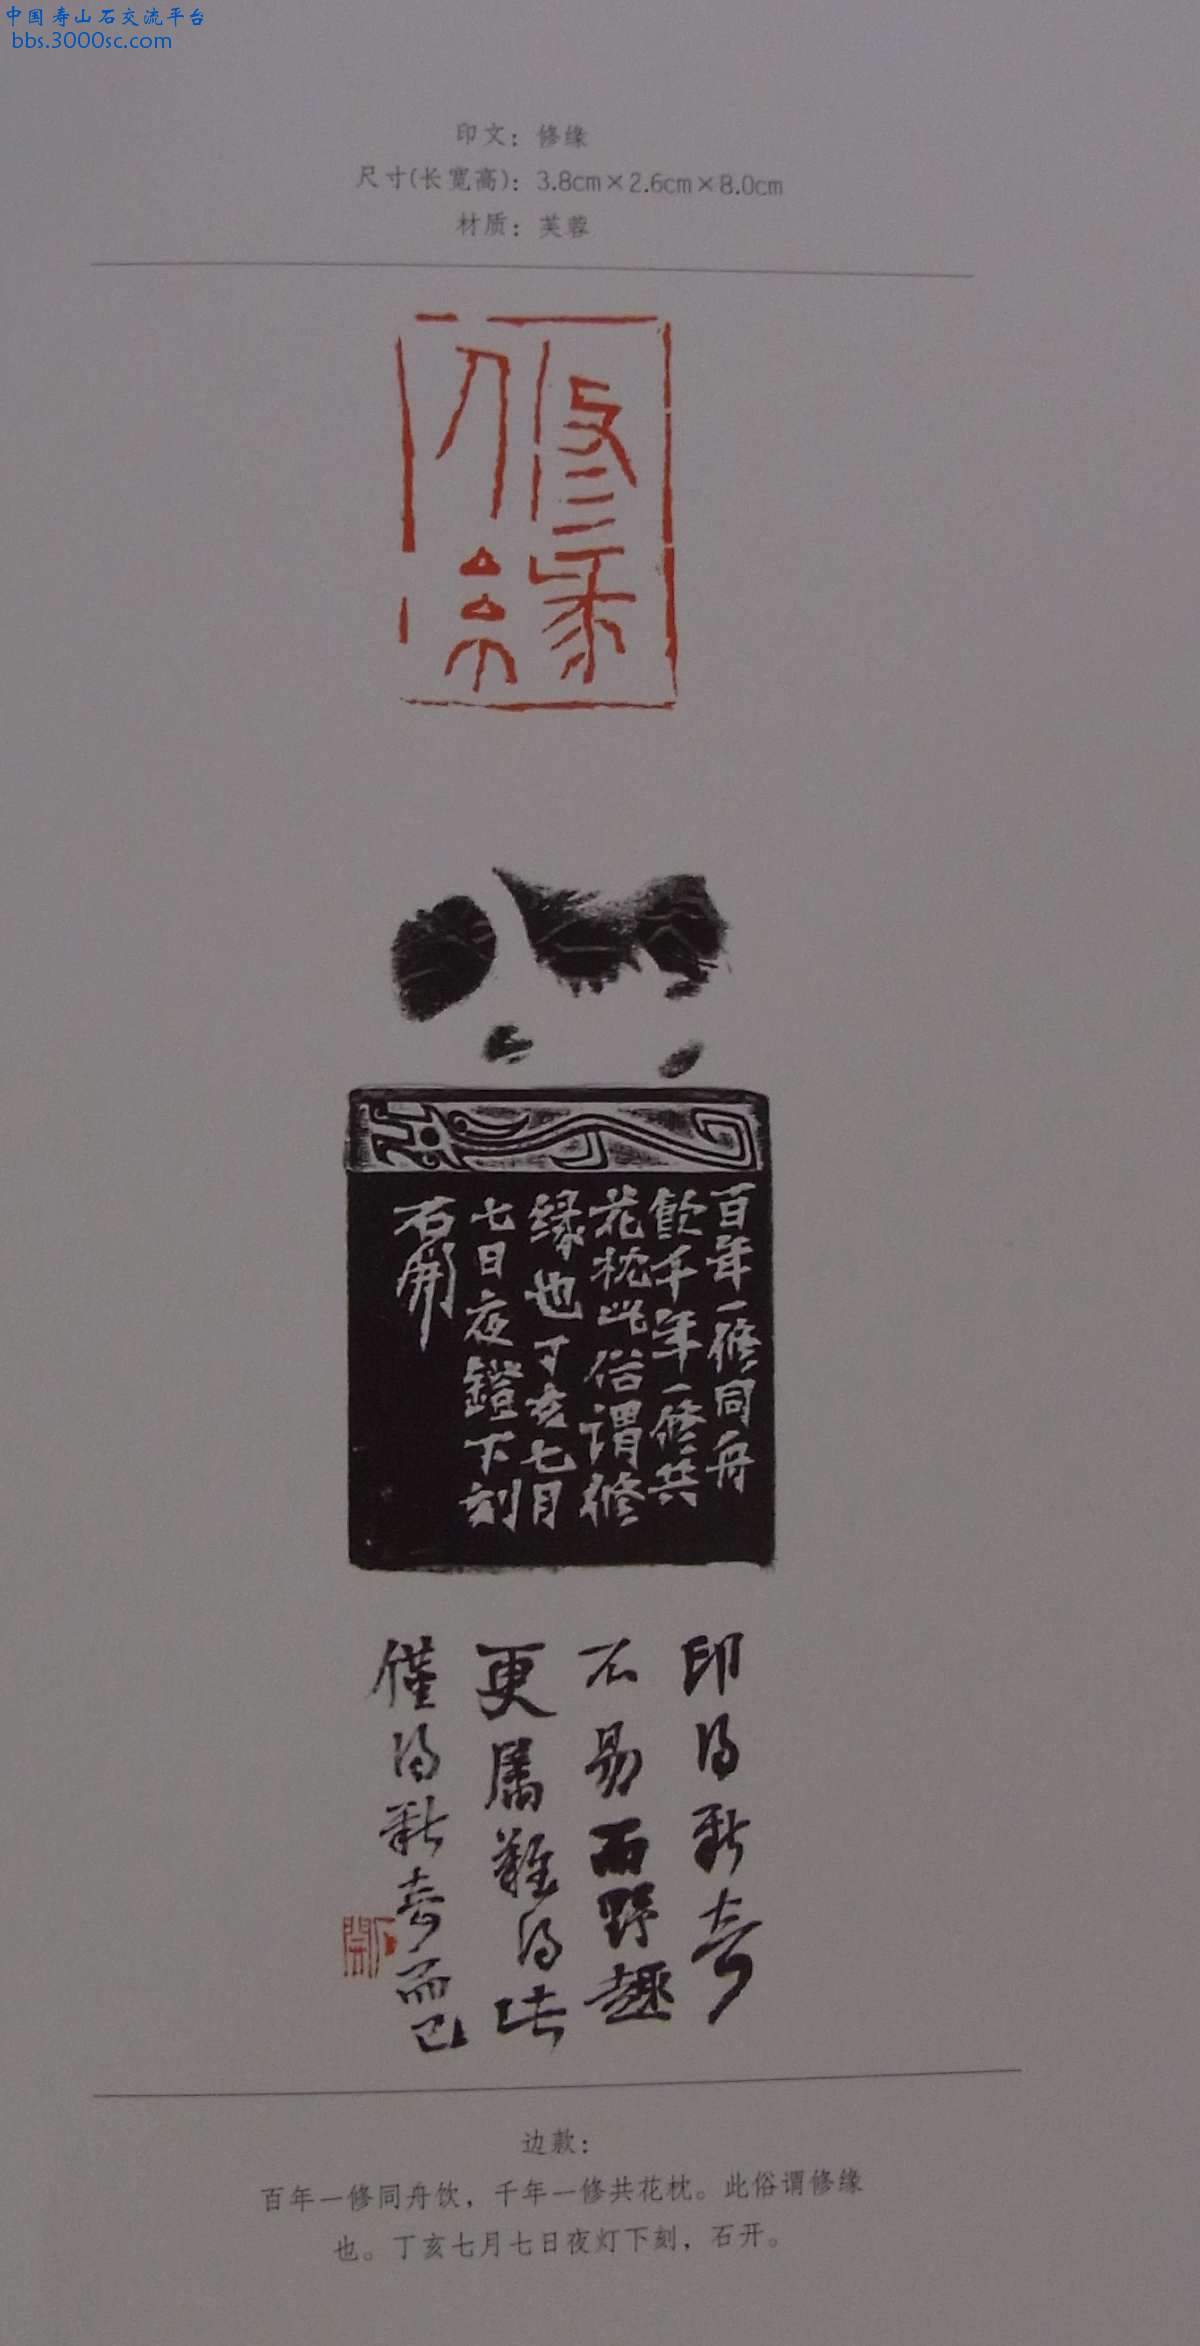 中国寿山石交流平台
bbs.3000sc.com
印文：修缘
尺寸(长宽高)：3.8cm×2.6cm×8.0cm
材质：芙蓉
修緣
百年一修同舟
飲千年一修共
花枕此俗谓修
缘也丁亥七月
七日夜鐙下刻
石開
印得新奇
不易而野趣
更属難得此
僅得新奇而已
石開
边款：
百年一修同舟饮，千年一修共花枕。此俗谓修缘
也。丁亥七月七日夜灯下刻，石开。